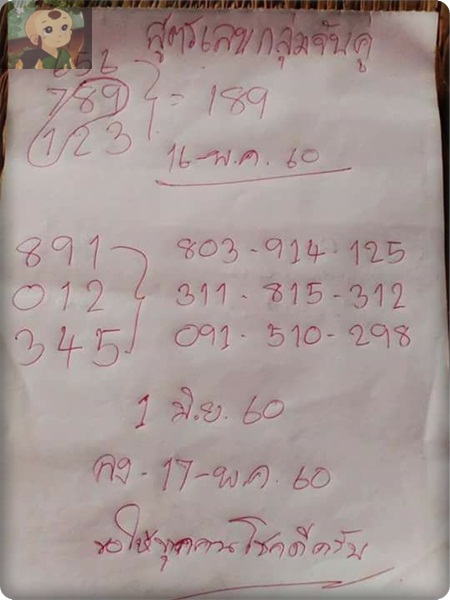 สูตรเลขกลุ่มจับคู่
789 } = 189
123
16-พ.ค. 60
891 } 803-914-125
012 311-815-312
345 091-510-298
1 มิ.ย. 60
คง-17-พ.ค. 60
ขอให้ทุกคนโชคดีครับ